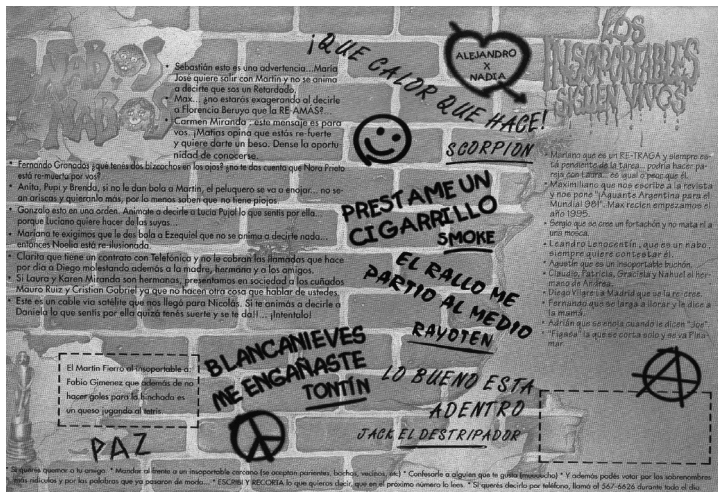 • Sebastián esto es una advertencia...María
José quiere salir con Martín y no se anima
a decirte que sos un Retardado.
• Max... ¿no estarás exagerando al decirle
a Florencia Beruya que la RE-AMÁS?...
• Carmen Miranda : este mensaje es para
vos. ¡Matías opina que estás re-fuerte
y quiere darte un beso. Dense la oportu-
nidad de conocerse.
• Fernando Granados ¿qué tenés dos bizcochos en los ojos? ¿no te das cuenta que Nora Prieto
está re-muerta por vos?
• Anita, Pupi y Brenda, si no le dan bola a Martín, el peluquero se va a enojar... no se-
an ariscas y quieranlo más, por lo menos saben que no tiene piojos.
• Gonzalo esto en una orden. Animate a decirle a Lucía Pujol lo que sentís por ella...
porque Luciano quiere hacer de las suyas...
• Mariana te exigimos que le des bola a Ezequiel que no se anima a decirte nada...
entonces Noelia está re-ilusionada.
• Clarita que tiene un contrato con Telefónica y no le cobran las llamadas que hace
por día a Diego molestando además a la madre, hermana y a los amigos.
• Si Laura y Karen Miranda son hermanas, presentamos en sociedad a los cuñados
Mauro Ruiz y Cristian Gabriel ya que no hacen otra cosa que hablar de ustedes.
• Este es un cable via satélite que nos llegó para Nicolás. Si te animás a decirle a
Daniela lo que sentís por ella quizá tenés suerte y se te da!!... ¡Intentalo!
El Martín Fierro al insoportable a:
Fabio Gimenez que además de no
hacer goles para la hinchada es
un queso jugando al tetris.
PAZ
¡QUE CALOR QUE HACE!
SCORPION
ALEJANDRO
X
NADIA
PRESTAME UN
CIGARRILLO
SMOKE
EL RALLO ME
PARTIO AL MEDIO
RAYOTEN
BLANCANIEVES
ME ENGAÑASTE
TONTÍN
LO BUENO ESTA
ADENTRO
JACK EL DESTRIPADOR
LOS
INSOPORTABLES
SIGUEN VIVOS
• Mariano que es un RE-TRAGA y siempre es-
tá pendiente de la tarea... podría hacer pa-
reja con es igual o peor que él.
• Maximiliano que nos escribe a la revista
y nos pone "¡Aguante Argentina para el
Mundial 98!". Max recién empezamos el
año 1995.
• Sergio que se cree un fortachón y no mata ni a
una mosca.
• Leandro Lenocentin , que es un nabo,
siempre quiere contestar él.
• Agustín que es un insoportable buchón.
• Claudio, Patricia, Graciela y Nahuel el her-
mano de Andrea.
• Diego Vigre La Madrid que se la re-cree.
• Fernando que se larga a llorar y le dice
a la mamá.
• Adrián que se enoja cuando le dicen "Joe"
"Figada" la que se corta sola y se va Pina-
mar.
* Si querés quemar a tu amigo. * Mandar al frente a un insoportable cercano (se aceptan parientes, bochos, vecinos, etc) * Confesarle a alguien que te gusta (muuuucho) * Y además podés votar por los sobrenombres
más ridículos y por las palabras que ya pasaron de moda... * ESCRIBÍ Y RECORTÁ lo que quieras decir, que en el próximo número lo lees. * Si querés decirlo por teléfono, llama al 567-6626 durante todo el día.